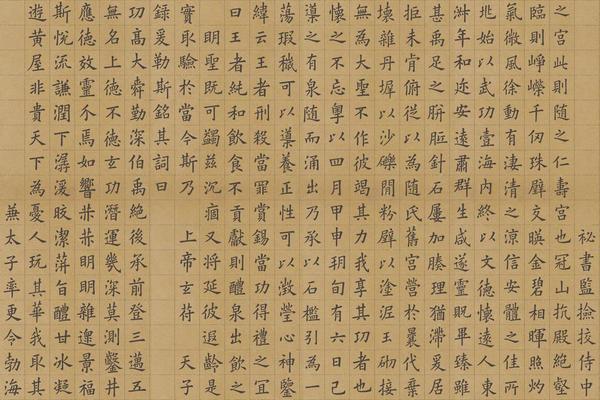 祕書監撿挍侍中
之宮此則隨之仁壽宮也冠山抗殿絕壑
臨則崢嶸千仞珠璧交暎金碧相暉照灼
氣微風徐動有淒清之涼信安體之佳所
兆始以武功壹海內終以文德懷遠人東
卅年和迩安遠肅群生咸遂靈貺畢臻雖
甚禹足之胼胝針石屢加腠理猶滯爰居
拒未肯俯從以為隨氏舊宮營於曩代棄
壞雜丹墀以沙礫間粉壁以塗泥玉砌接
無為大聖不作彼竭其力我享其功者也
懷之不忘粵以四月甲申朔旬有六日己
導之有泉隨而涌出乃承以石檻引為一
蕩瑕穢可以導養正性可以澂瑩心神鑒
緯云王者刑殺當罪賞錫當功得禮之宜
曰王者純和飲食不貢獻則醴泉出飲之
明聖既可蠲茲沉痼又將延彼遐齡是
實取驗於當今斯乃 上帝玄苻 天子
錄爰勒斯銘其詞曰
功高大舜勤深伯禹絕後承前登三邁五
無名上德不德玄功潛運幾深莫測鑿井
應德放靈介焉如響明明雜遝景福
斯怳流謙潤下潺湲皎潔蓱旨醴甘冰凝
遊黃屋非貴天下為憂人玩其華我取其
兼太子率更令勃海